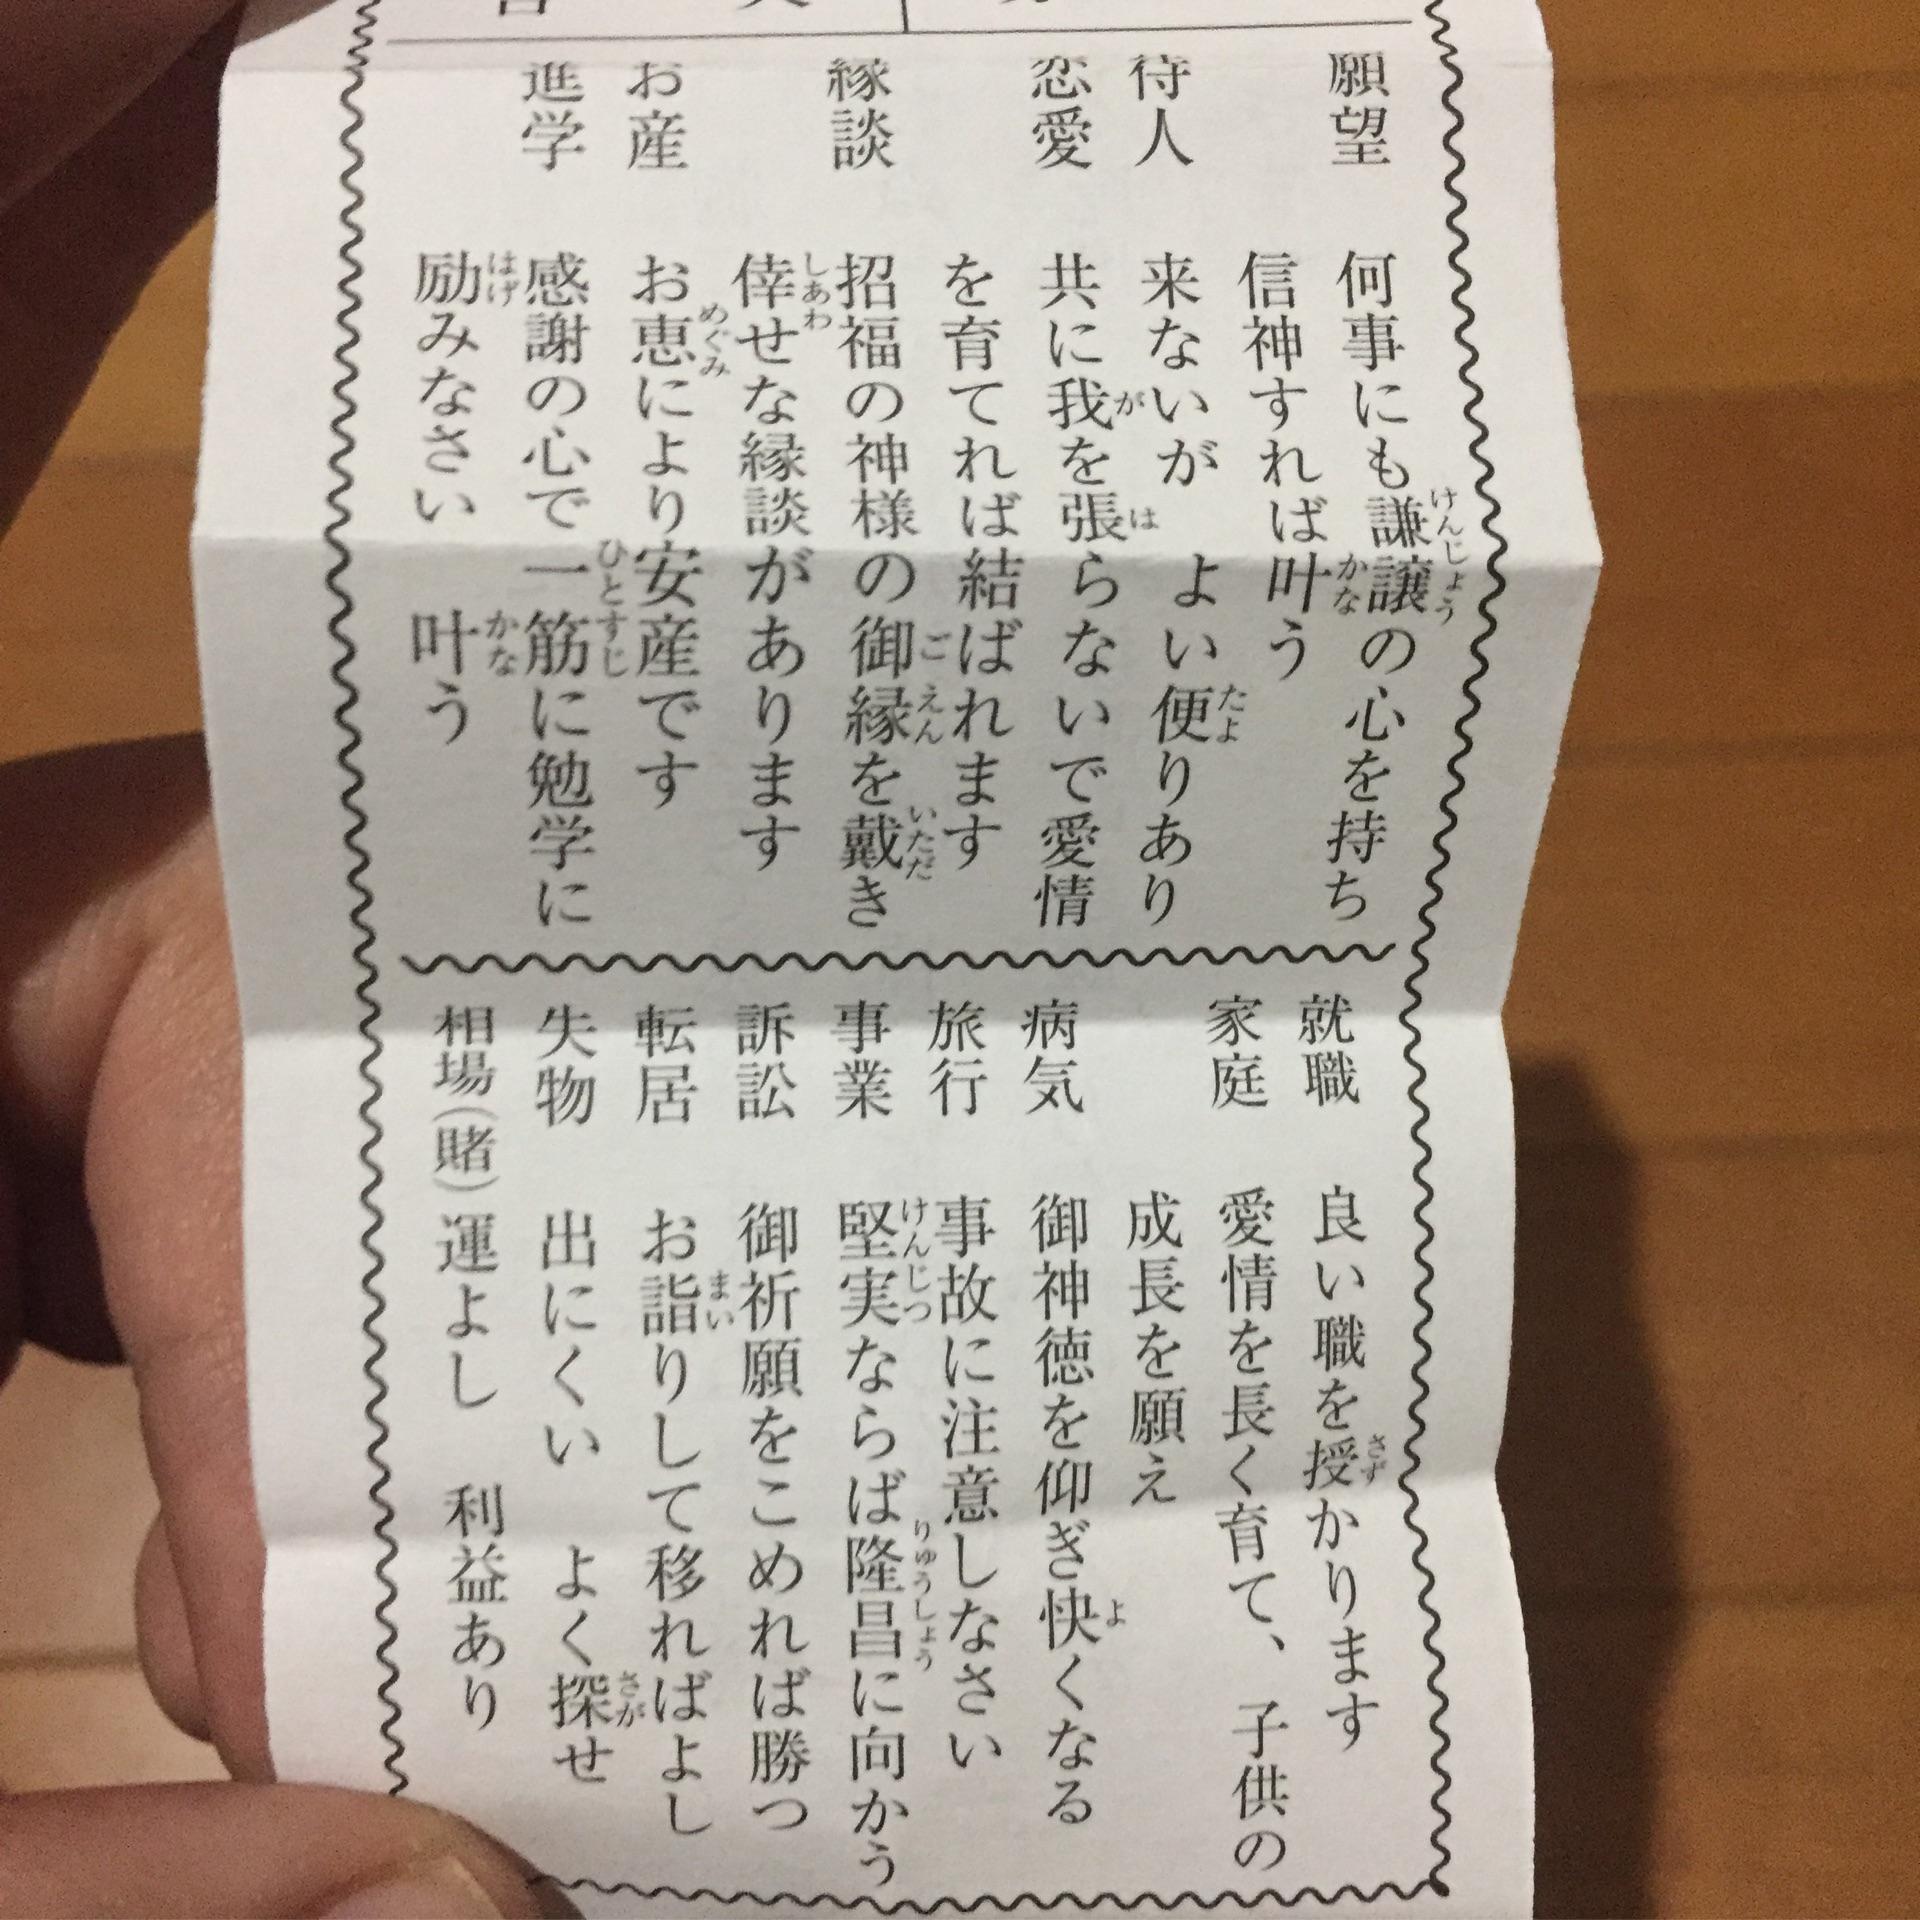 願望 何事にも謙譲の心を持ち
信神すれば叶う
待人 来ないが よい便りあり
恋愛 共に我を張らないで愛情
を育てれば結ばれます
縁談 招福の神様の御縁を戴き
倖せな縁談があります
お産 お恵により安産です
進学 感謝の心で一筋に勉学に
励みなさい 叶う
就職 良い職を授かります
家庭 愛情を長く育て、子供の
成長を願え
病気 御神徳を仰ぎ快くなる
旅行 事故に注意しなさい
事業 堅実ならば隆昌に向かう
訴訟 御祈願をこめれば勝つ
転居 お詣りして移ればよし
失物 出にくい よく探せ
相場(賭) 運よし 利益あり